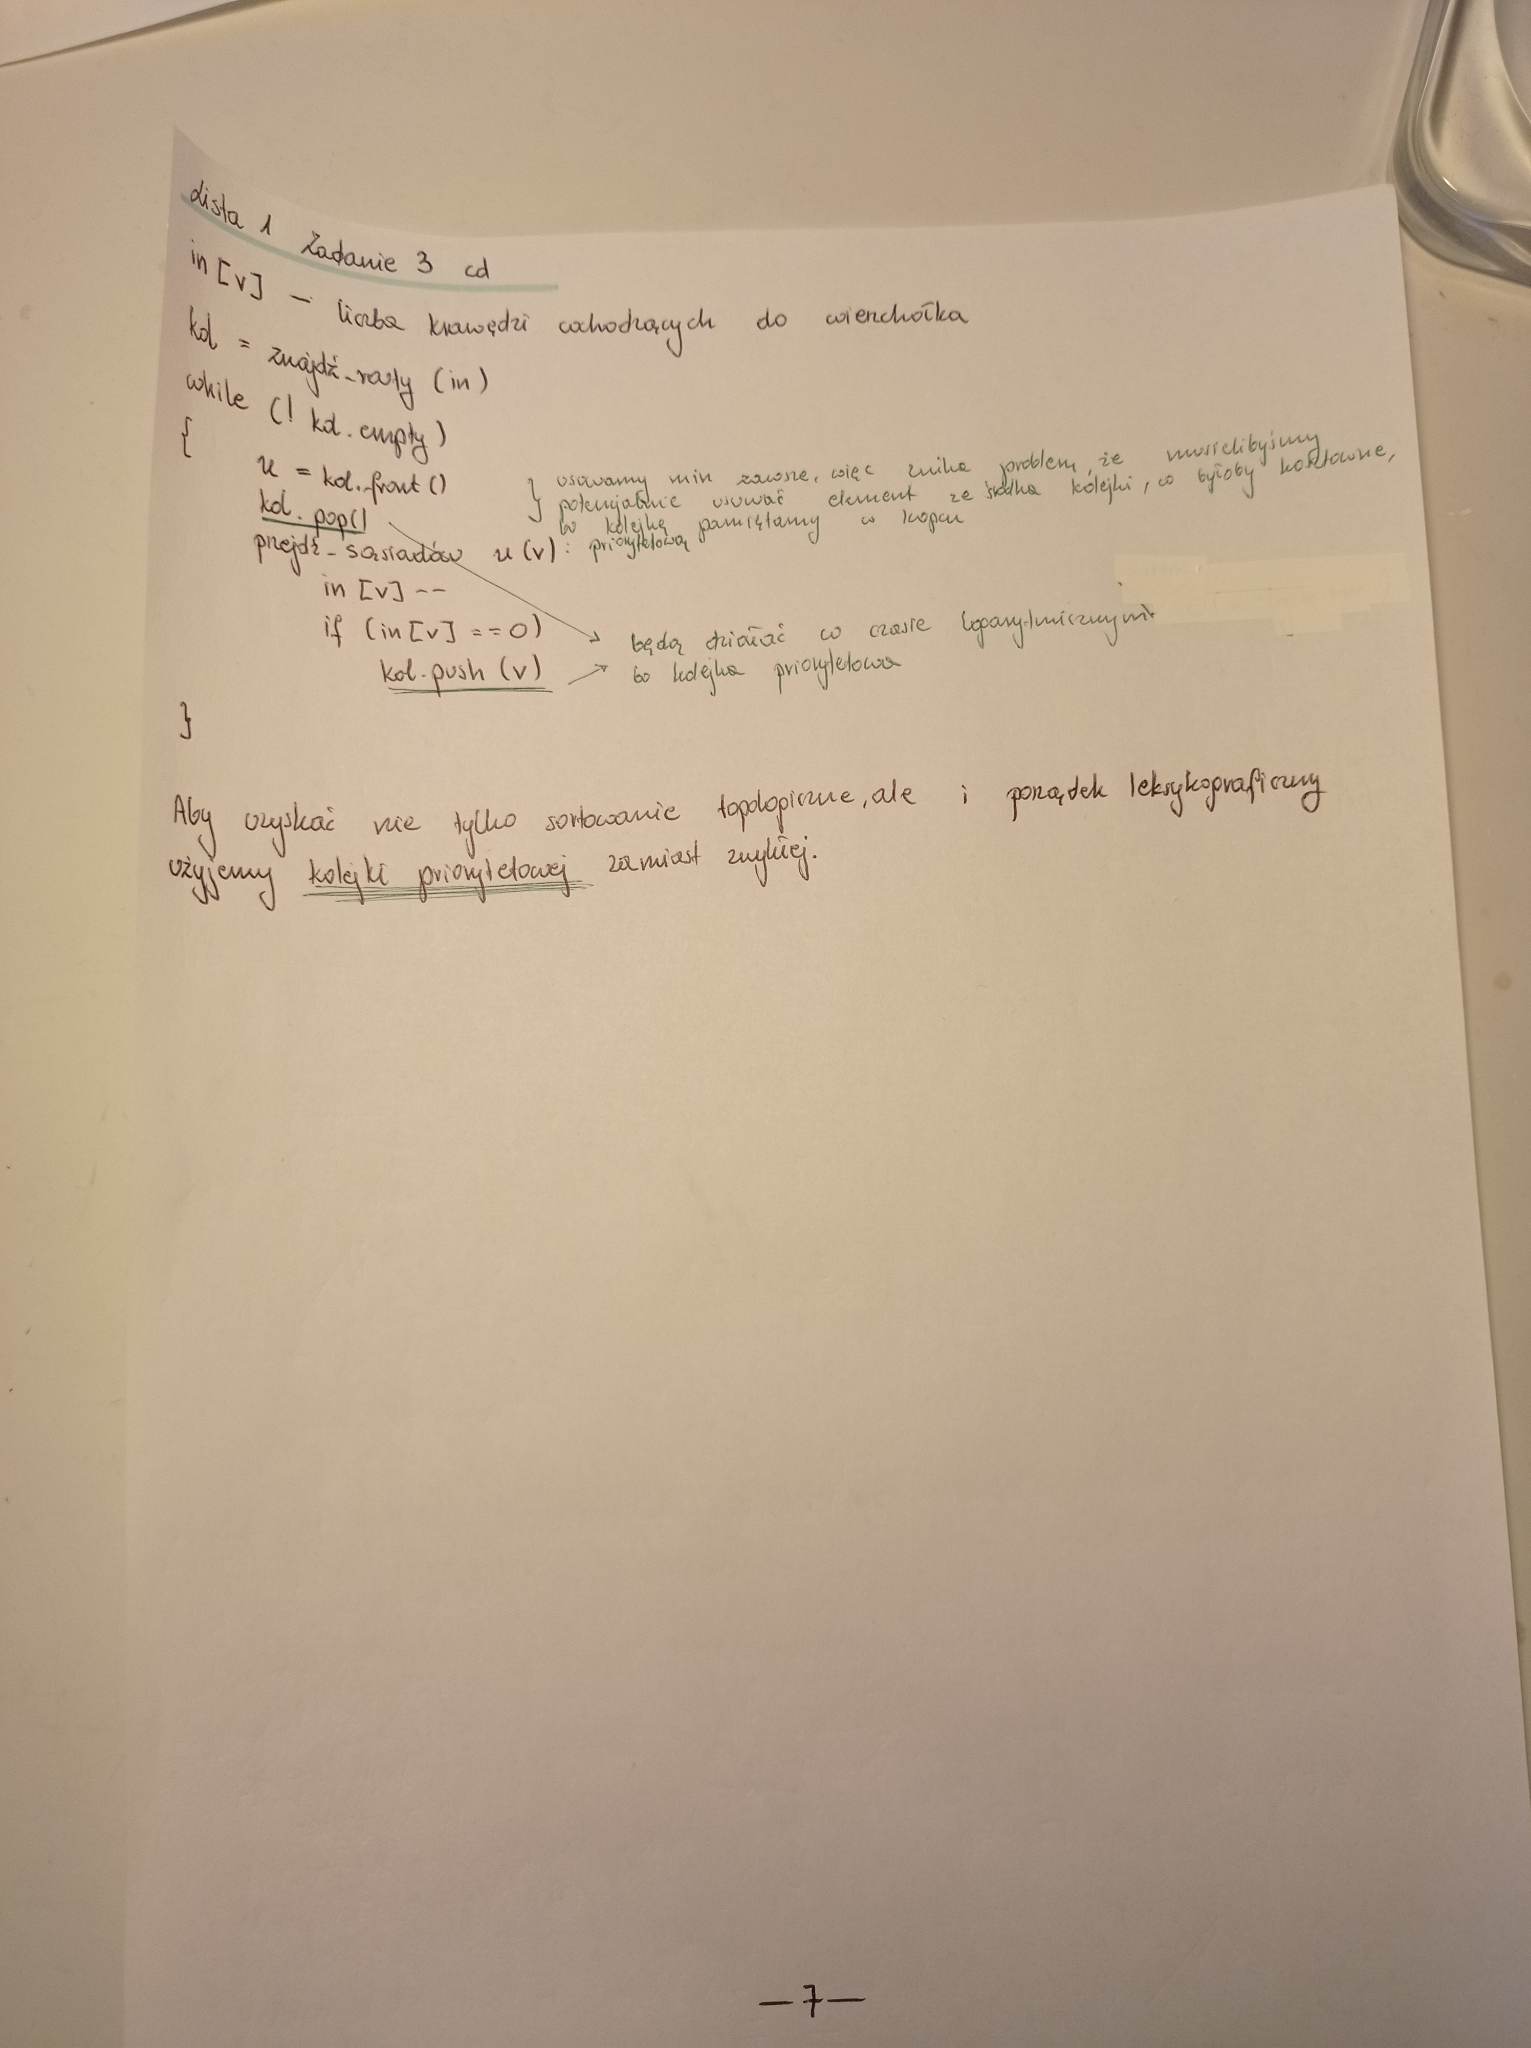 Lista 1 Zadanie 3 cd
in [v] – liczba krawędzi wchodzących do wierzchołka
kol = znajdź_rooty (in)
while (! kol. empty)
{
u = kol. front ()
kol. pop()
} usuwamy min zawsze, więc znika problem, że musielibyśmy
potencjalnie usuwać element ze środka kolejki, co byłoby kosztowne,
bo kolejkę pamiętamy w kopcu
priorytetową
przejdź_sąsiadów u (v):
in [v] --
if (in [v] == 0)
kol. push (v)
będą działać w czasie logarytmicznym
bo kolejka priorytetowa
}
Aby uzyskać nie tylko sortowanie topologiczne, ale i porządek leksykograficzny
użyjemy kolejki priorytetowej zamiast zwykłej.
— 7 —